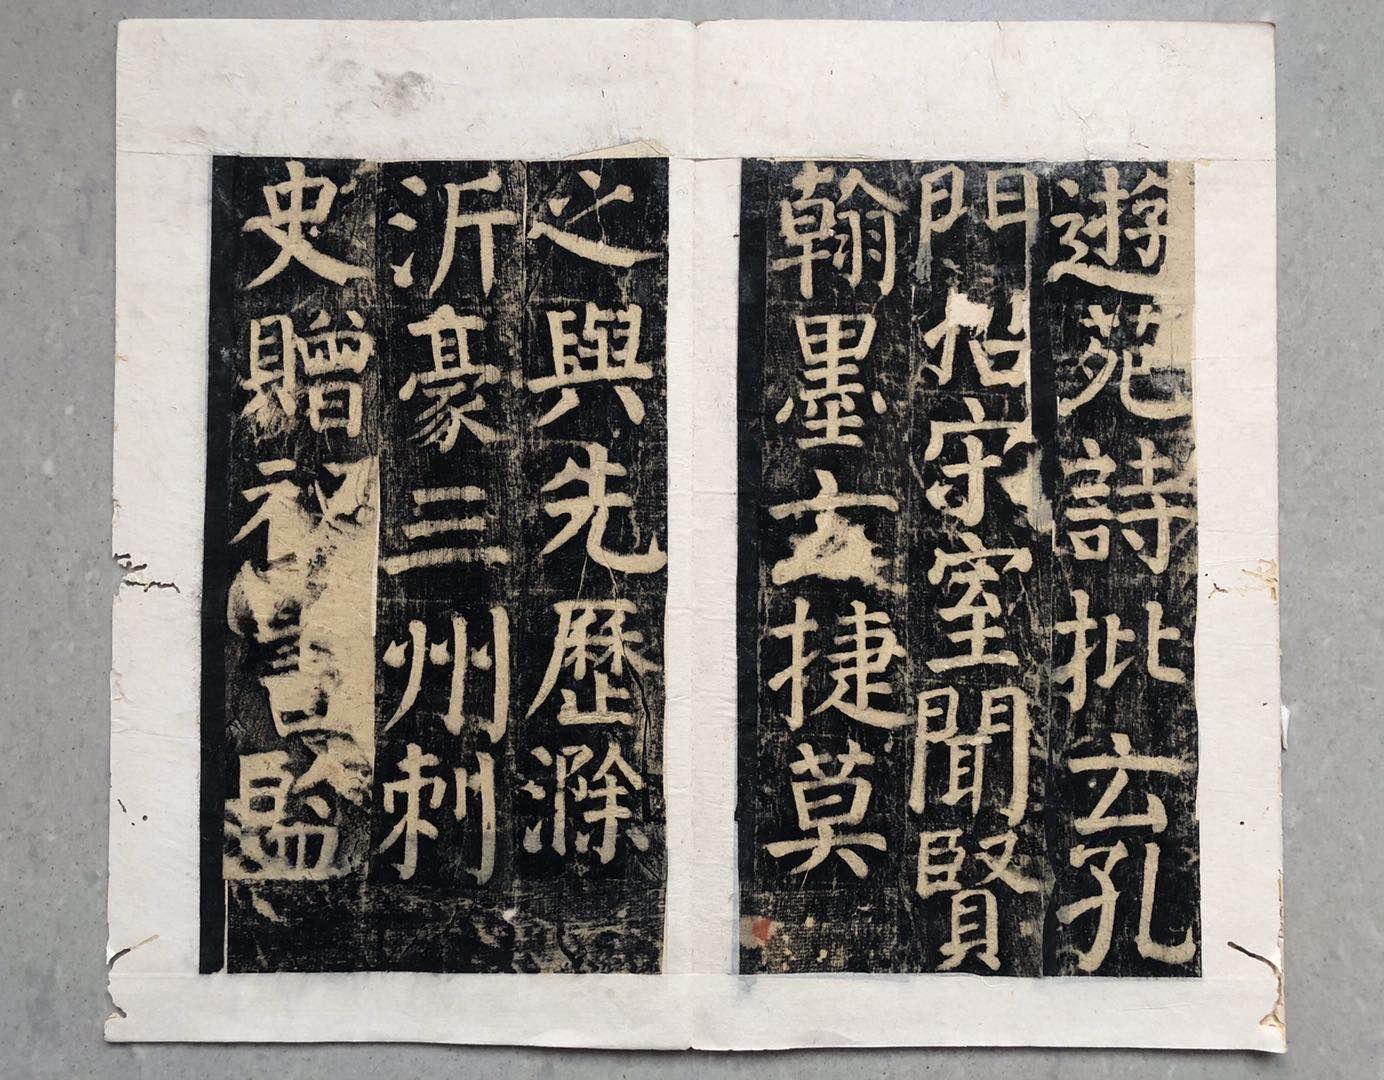 遊苑詩批云孔
門室聞賢
翰墨云捷莫
之與先歷滁
沂豪三州刺
史贈監